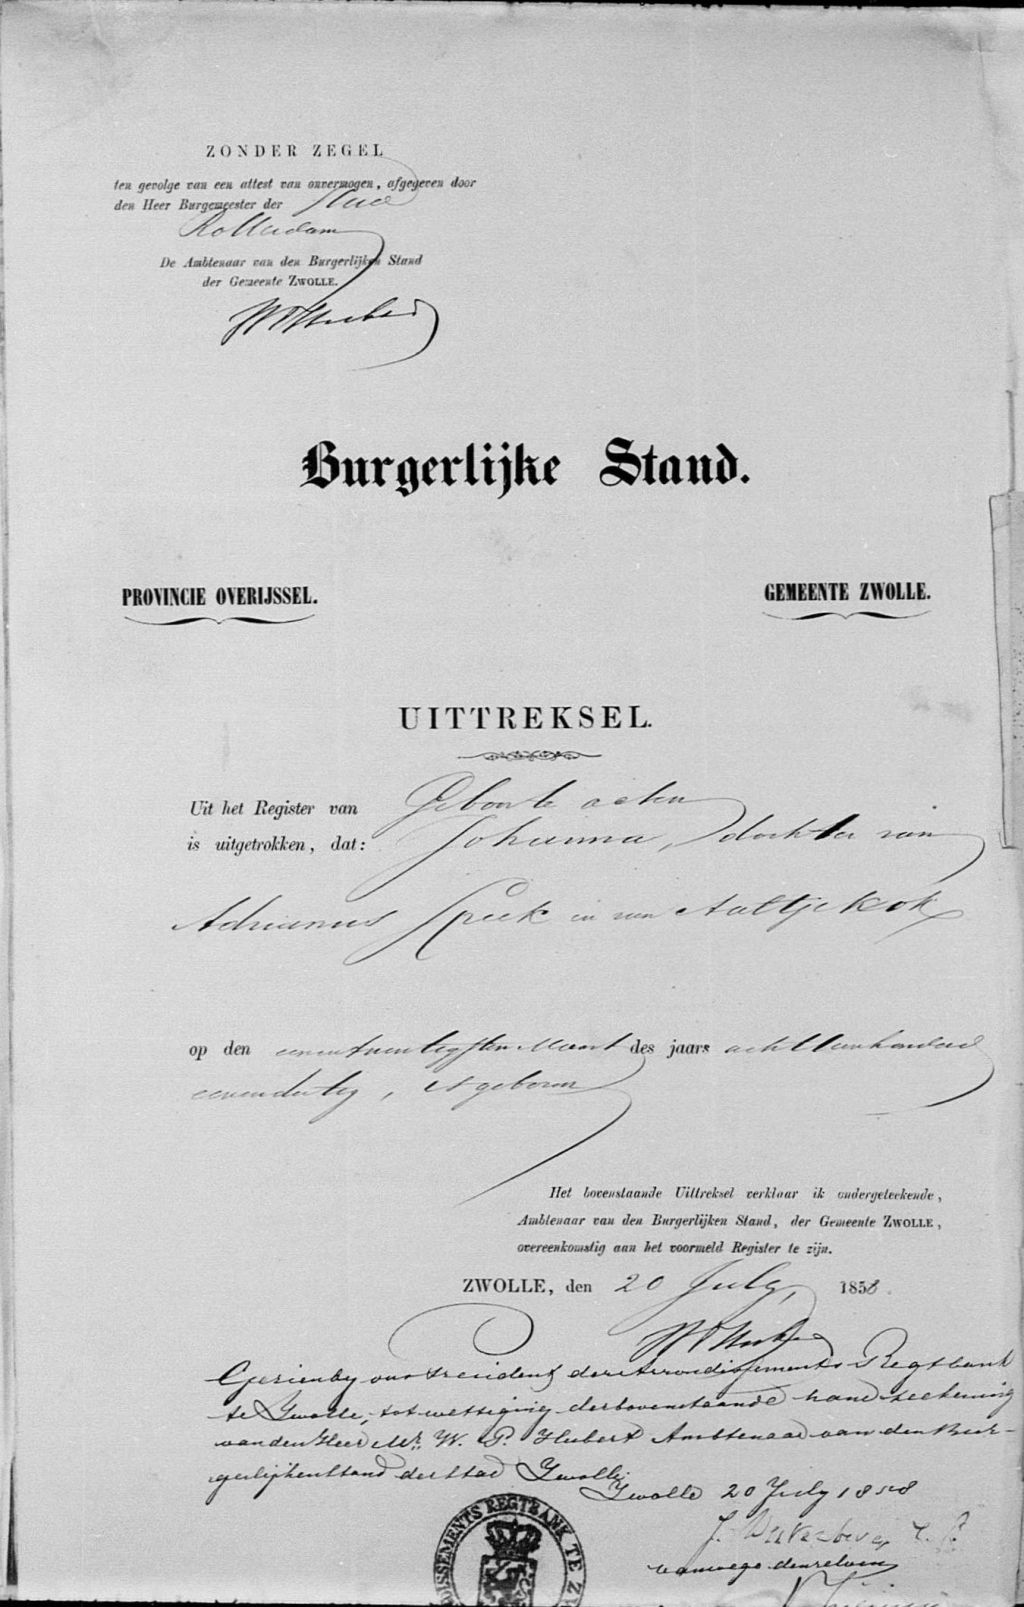 ZONDER ZEGEL
ten gevolge van een attest van onvermogen, afgegeven door
den Heer Burgemeester der Stad
Rotterdam
De Ambtenaar van den Burgerlijken Stand
der Gemeente ZWOLLE.
Burgerlijke Stand.
PROVINCIE OVERIJSSEL.
GEMEENTE ZWOLLE.
UITTREKSEL.
Uit het Register van Geboorte acten
is uitgetrokken, dat: Johanna, dochter van
Adrianus Spiek en van Aaltje Kok
op den eenentwintigsten Maart des jaars achttienhonderd
eenendertig, is geboren
Het bovenstaande Uittreksel verklaar ik ondergeteekende,
Ambtenaar van den Burgerlijken Stand, der Gemeente ZWOLLE,
overeenkomstig aan het voormeld Register te zijn.
ZWOLLE, den 20 July, 1858.
Gezien by ons President der Arrondissements Regtbank
te Zwolle, tot wettiging der bovenstaande handteekening
van den Heer Mr. W. P. Hubert Ambtenaar van den Bur-
gerlijken Stand der Stad Zwolle.
Zwolle 20 July 1858
vanwege denzelven
ISSEMENTS REGTBANK TE Z